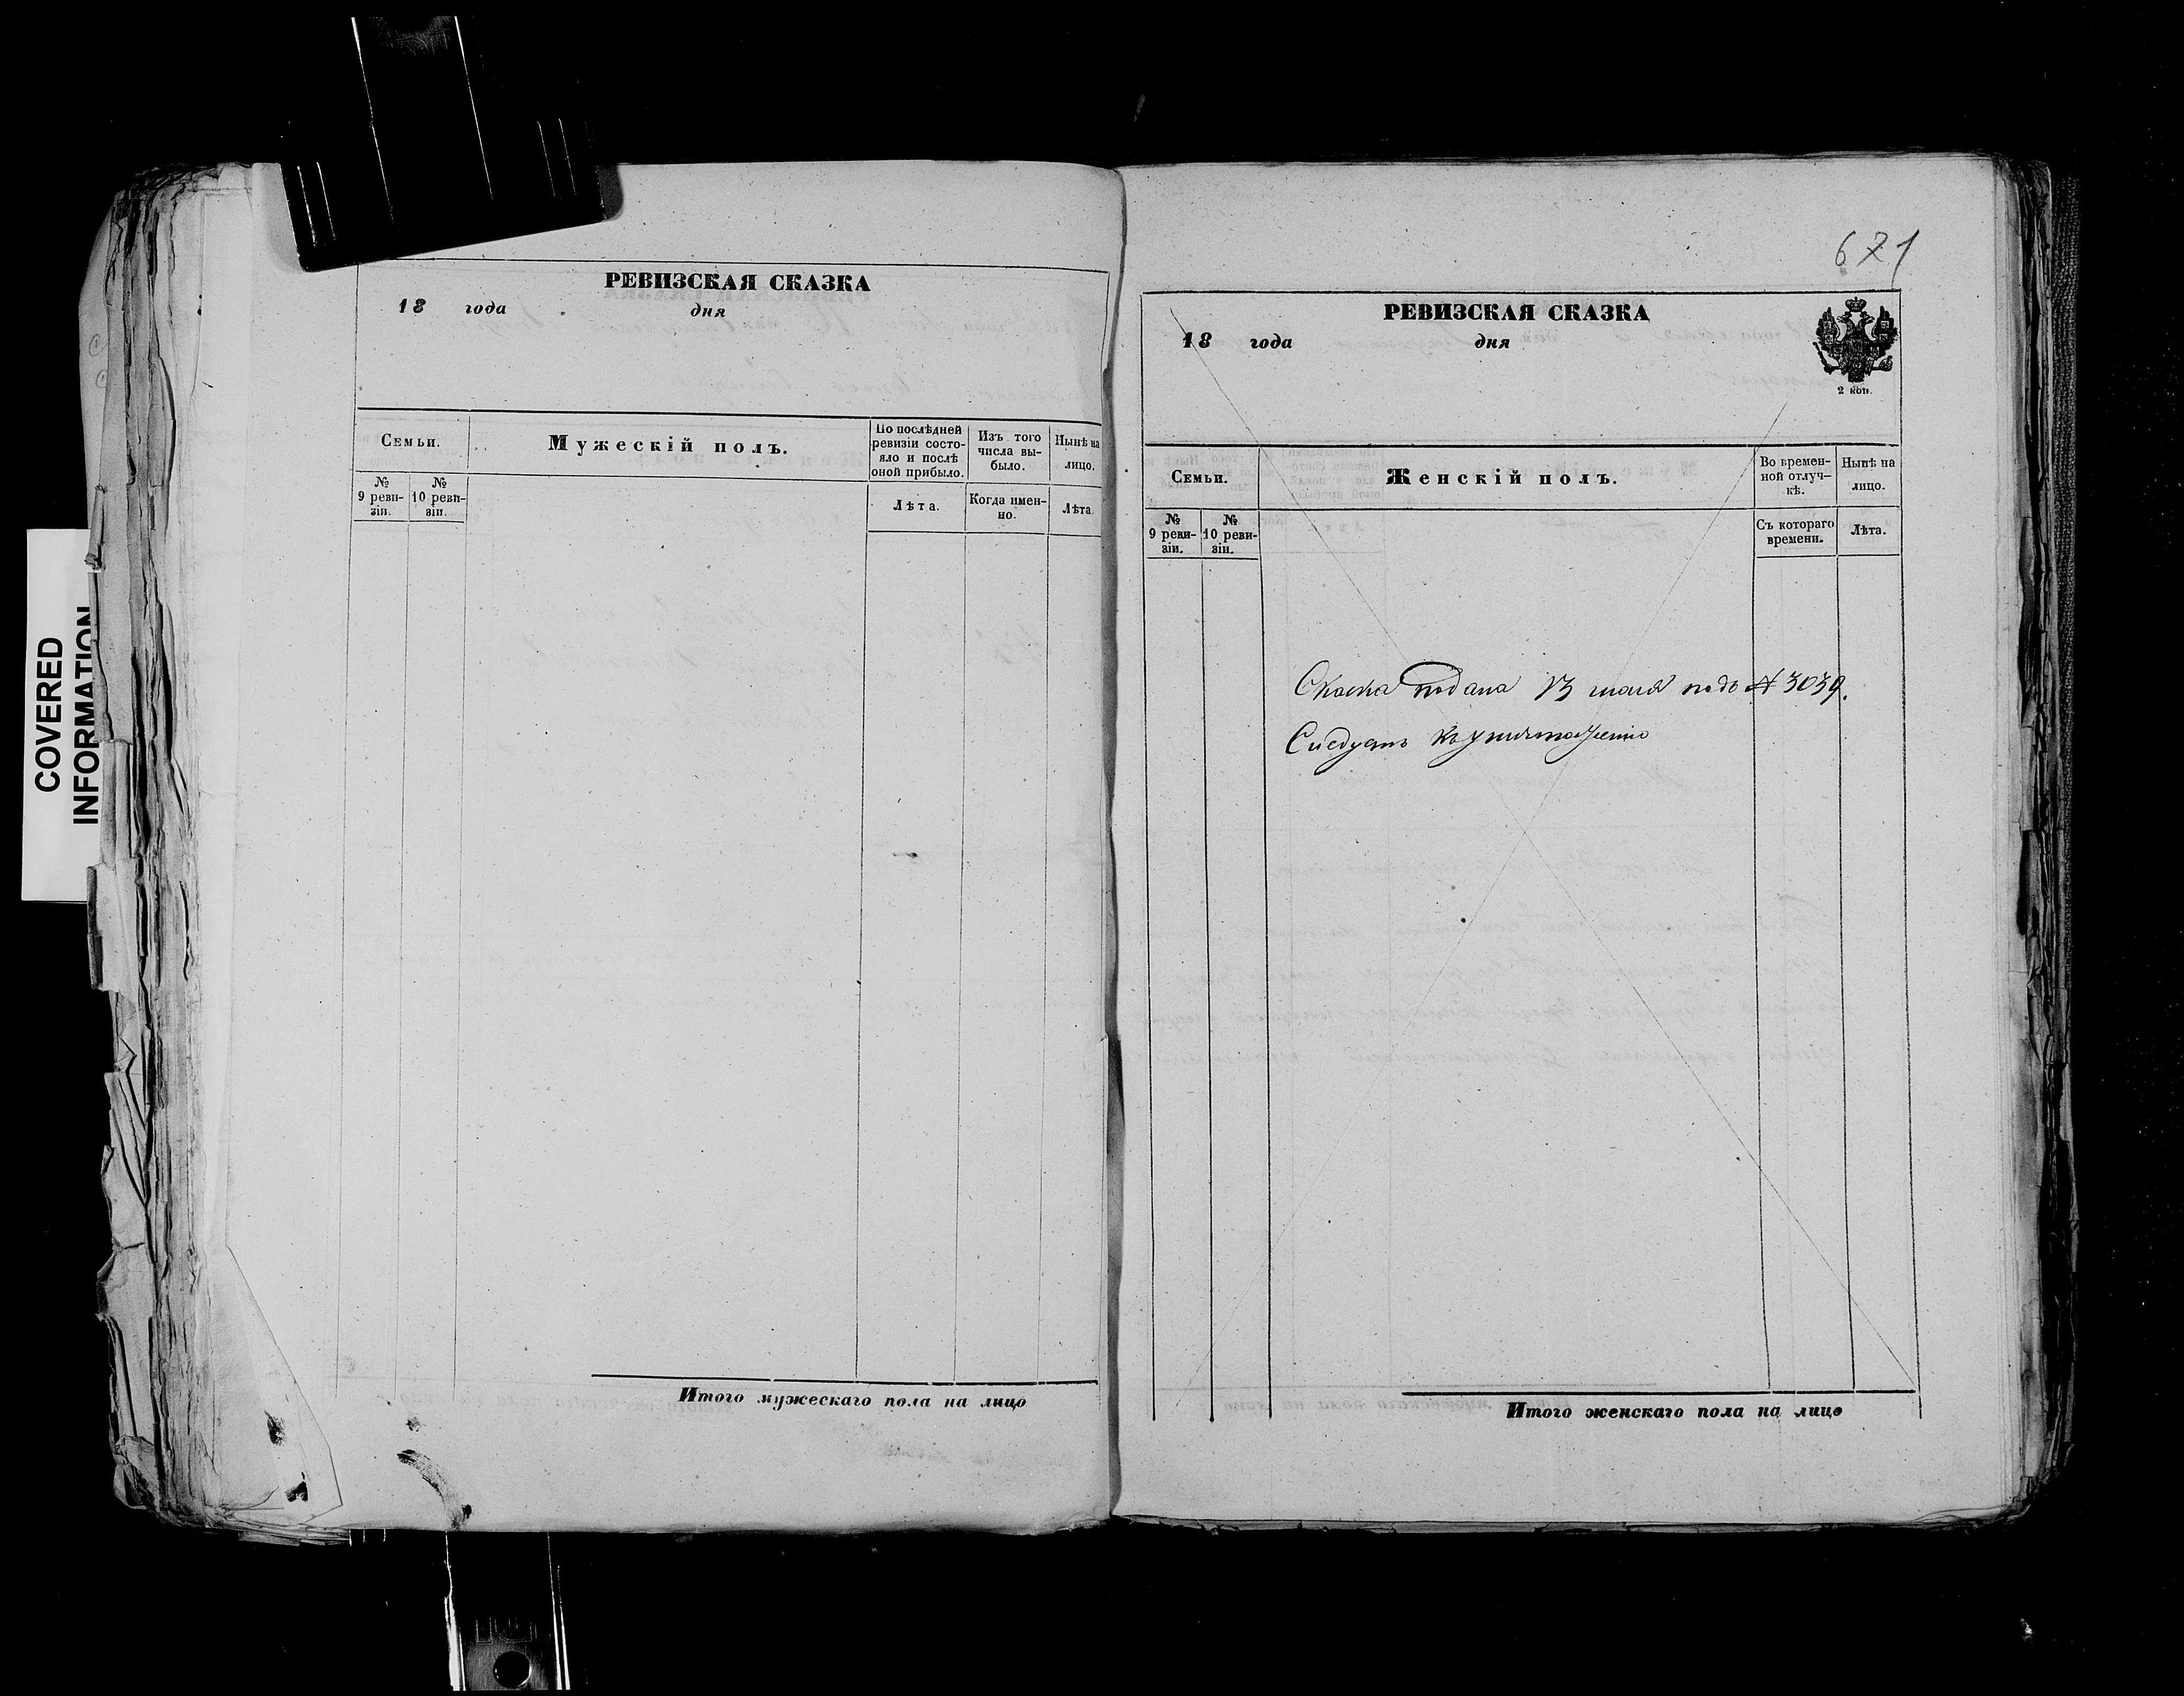 COVERED
INFORMATION
РЕВИЗСКАЯ СКАЗКА
18 года дня
Семьи.
Мужескій полъ.
По послѣдней
ревизіи состо-
яло и послѣ
оной прибыло.
Изъ того
числа вы-
было.
Нынѣ на
лицо.
№
9 реви-
зіи.
№
10 реви-
зіи.
Лѣта.
Когда имен-
но.
Лѣта.
Итого мужескаго пола на лицо
671
РЕВИЗСКАЯ СКАЗКА
18 года дня
2 коп.
Семьи.
Женскій полъ.
Во времен-
ной отлуч-
кѣ.
Нынѣ на
лицо.
№
9 реви-
зіи.
№
10 реви-
зіи.
Съ котораго
времени.
Лѣта.
Сказка подана 13 июня подъ № 3039.
Следуетъ къ уничтоженію
Итого женскаго пола на лицо